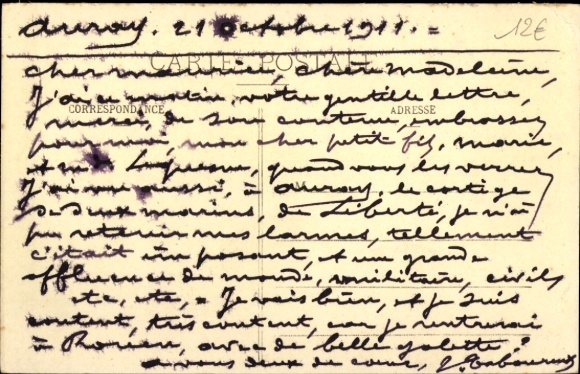 Auray. 21 Octobre 1911. =
12€
CARTE POSTALE
cher maurice, chère Madeleine,
J'ai ce matin, votre gentille lettre,
CORRESPONDANCE
ADRESSE
merci, de son contenu, embrassez
pour moi, mon cher petit fif, marie,
et Lequesne, quand vous les verrez
J'ai vu aussi, à Auray, le cortège
de deux marins, de Liberté, je n'ai
pu retenir mes larmes, tellement
c'était imposant, et une grande
affluence de monde, militaire, civils
etc, etc, = Je vais bien, et je suis
content, très content, car je rentrerai
à avec de belle galette.
a vous deux de cœur,